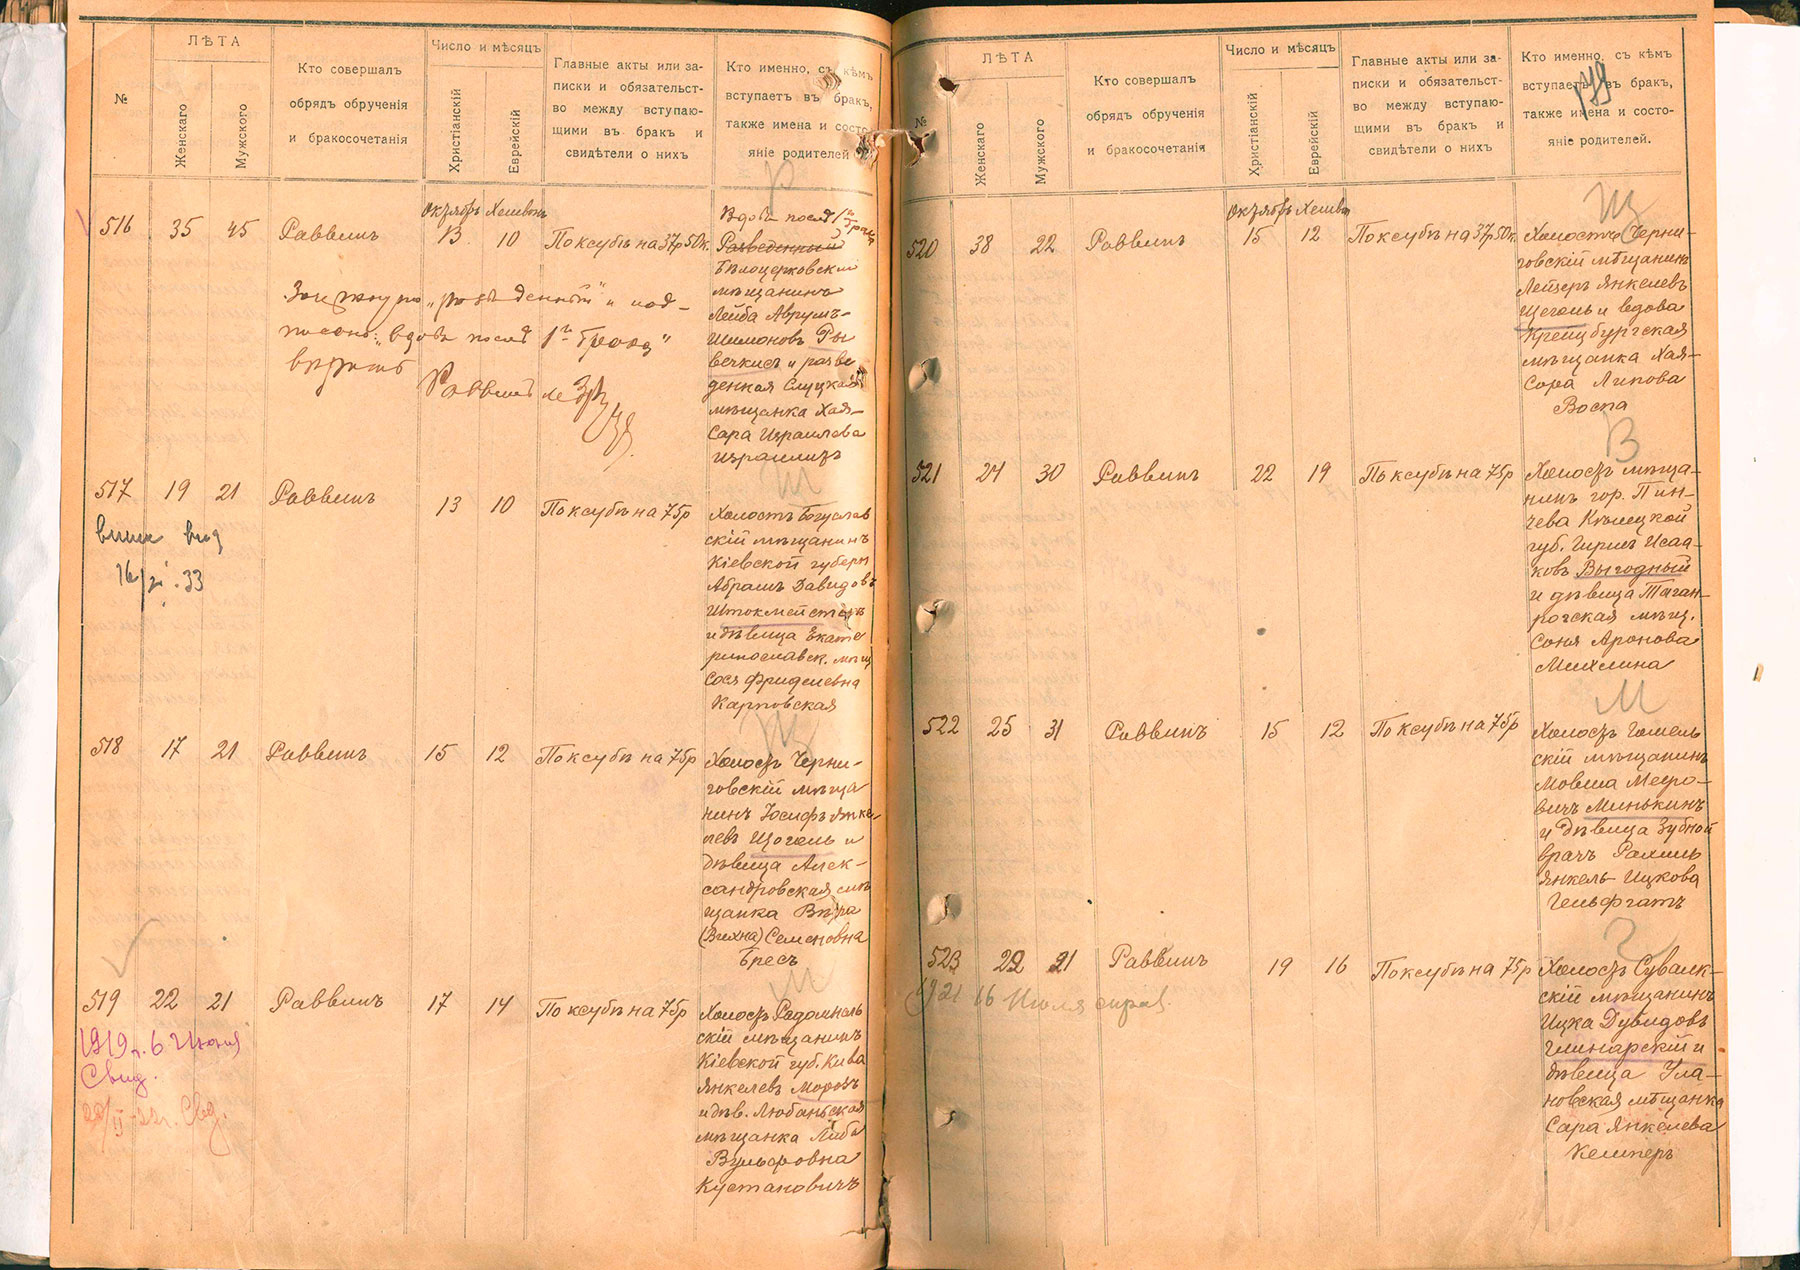 №
ЛѢТА
Женскаго
Мужского
Кто совершалъ
обрядъ обрученія
и бракосочетанія
Число и мѣсяцъ
Христіанскій
Еврейскій
Главные акты или за-
писки и обязательст-
во между вступаю-
щими въ бракъ и
свидѣтели о нихъ
Кто именно, съ кѣмъ
вступаетъ въ бракъ,
также имена и состо-
яніе родителей
516 35 45 Раввинъ
Октябрь Хешвонъ
13 10
По ксубѣ на 37р 50к.
Вдовъ послѣ 1го брака
Разведенный
Бѣлоцерковскій
мѣщанинъ
Лейба Аврумъ-
Шимоновъ Ры
вечкисъ и разве
денная Слуцкая
мѣщанка Хая-
Сара Израилева
Израилитъ
"разведенный" и над-
"вдовъ послѣ 1го брака"
вѣрить
Раввинъ
517 19 21 Раввинъ 13 10 По ксубѣ на 75р
16/ .33
Холостъ Богуслав
скій мѣщанинъ
Кіевской губерн
Абрамъ Давидовъ
Штокмейстеръ
и дѣвица Екате
ринославск. мѣщ
Сося Фриделевна
Карповская
518 17 21 Раввинъ 15 12 По ксубѣ на 75р
Холостъ Черни-
говскій мѣща
нинъ Іосифъ Янке-
левъ Щоголь и
дѣвица Алек-
сандровская мѣ
щанка Вѣра
(Вихна) Семеновна
Бресъ
519 22 21 Раввинъ 17 14 По ксубѣ на 75р
1919 г. 6 Июня
Свид.
20/II-22г. Свид.
Холостъ Радомысль
скій мѣщанинъ
Кіевской губ. Кива
Янкелевъ Морозъ
и дѣв. Любаньская
мѣщанка Либа
Вульфовна
Кустановичъ
№
ЛѢТА
Женскаго
Мужского
Кто совершалъ
обрядъ обрученія
и бракосочетанія
Число и мѣсяцъ
Христіанскій
Еврейскій
Главные акты или за-
писки и обязательст-
во между вступаю-
щими въ бракъ и
свидѣтели о нихъ
Кто именно, съ кѣмъ
вступаетъ въ бракъ,
также имена и состо-
яніе родителей.
Щ
520 38 22 Раввинъ
Октябрь Хешвон
15 12
По ксубѣ на 37р 50к.
Холостъ Черни-
говскій мѣщанинъ
Лейзеръ Янкелевъ
Щеголь и вдова
Крейцбургская
мѣщанка Хая-
Сора Липова
Воспа
В
521 24 30 Раввинъ 22 19 По ксубѣ на 75р
Холостъ мѣща-
нинъ гор. Пин-
чева Кѣлецкой
губ. Гиршъ Исаа-
ковъ Выгодный
и дѣвица Таган-
рогская мѣщ.
Соня Аронова
Михлина
М
522 25 31 Раввинъ 15 12 По ксубѣ на 75р
Холостъ Гомель
скій мѣщанинъ
Мовша Меро-
вичъ Минькинъ
и дѣвица Зубной
врачъ Рахиль
Янкель-Ицкова
Гельфгатъ
Г
523 22 21 Раввинъ 19 16 По ксубѣ на 75р
1921 16 Июля справ.
Холостъ Сувалк-
скій мѣщанинъ
Ицка Дувидовъ
Глинарскій и
дѣвица Ула-
новская мѣщанка
Сара Янкелева
Кемперъ